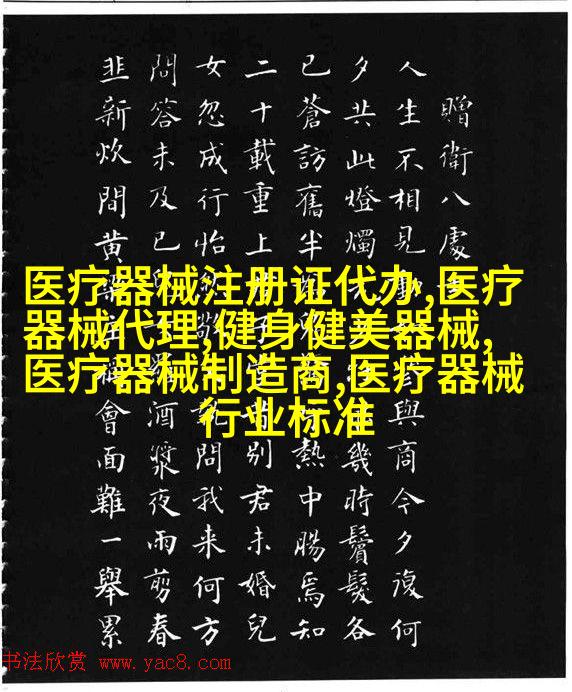 贈衛八處
人生不相見動與商今夕復何
夕共此燈燭幾時鬢髮各
已蒼訪舊半熱中腸焉知
二十載重上別君未婚兒
女忽成行怡敬問我来何方
問答未及已酒漿夜雨剪春
韭新炊間黄會面難一舉累
医疗器械注册证代办,医疗
器械代理,健身健美器械,
医疗器械制造商,医疗器械
行业标准
书法欣赏 www.yac8.com